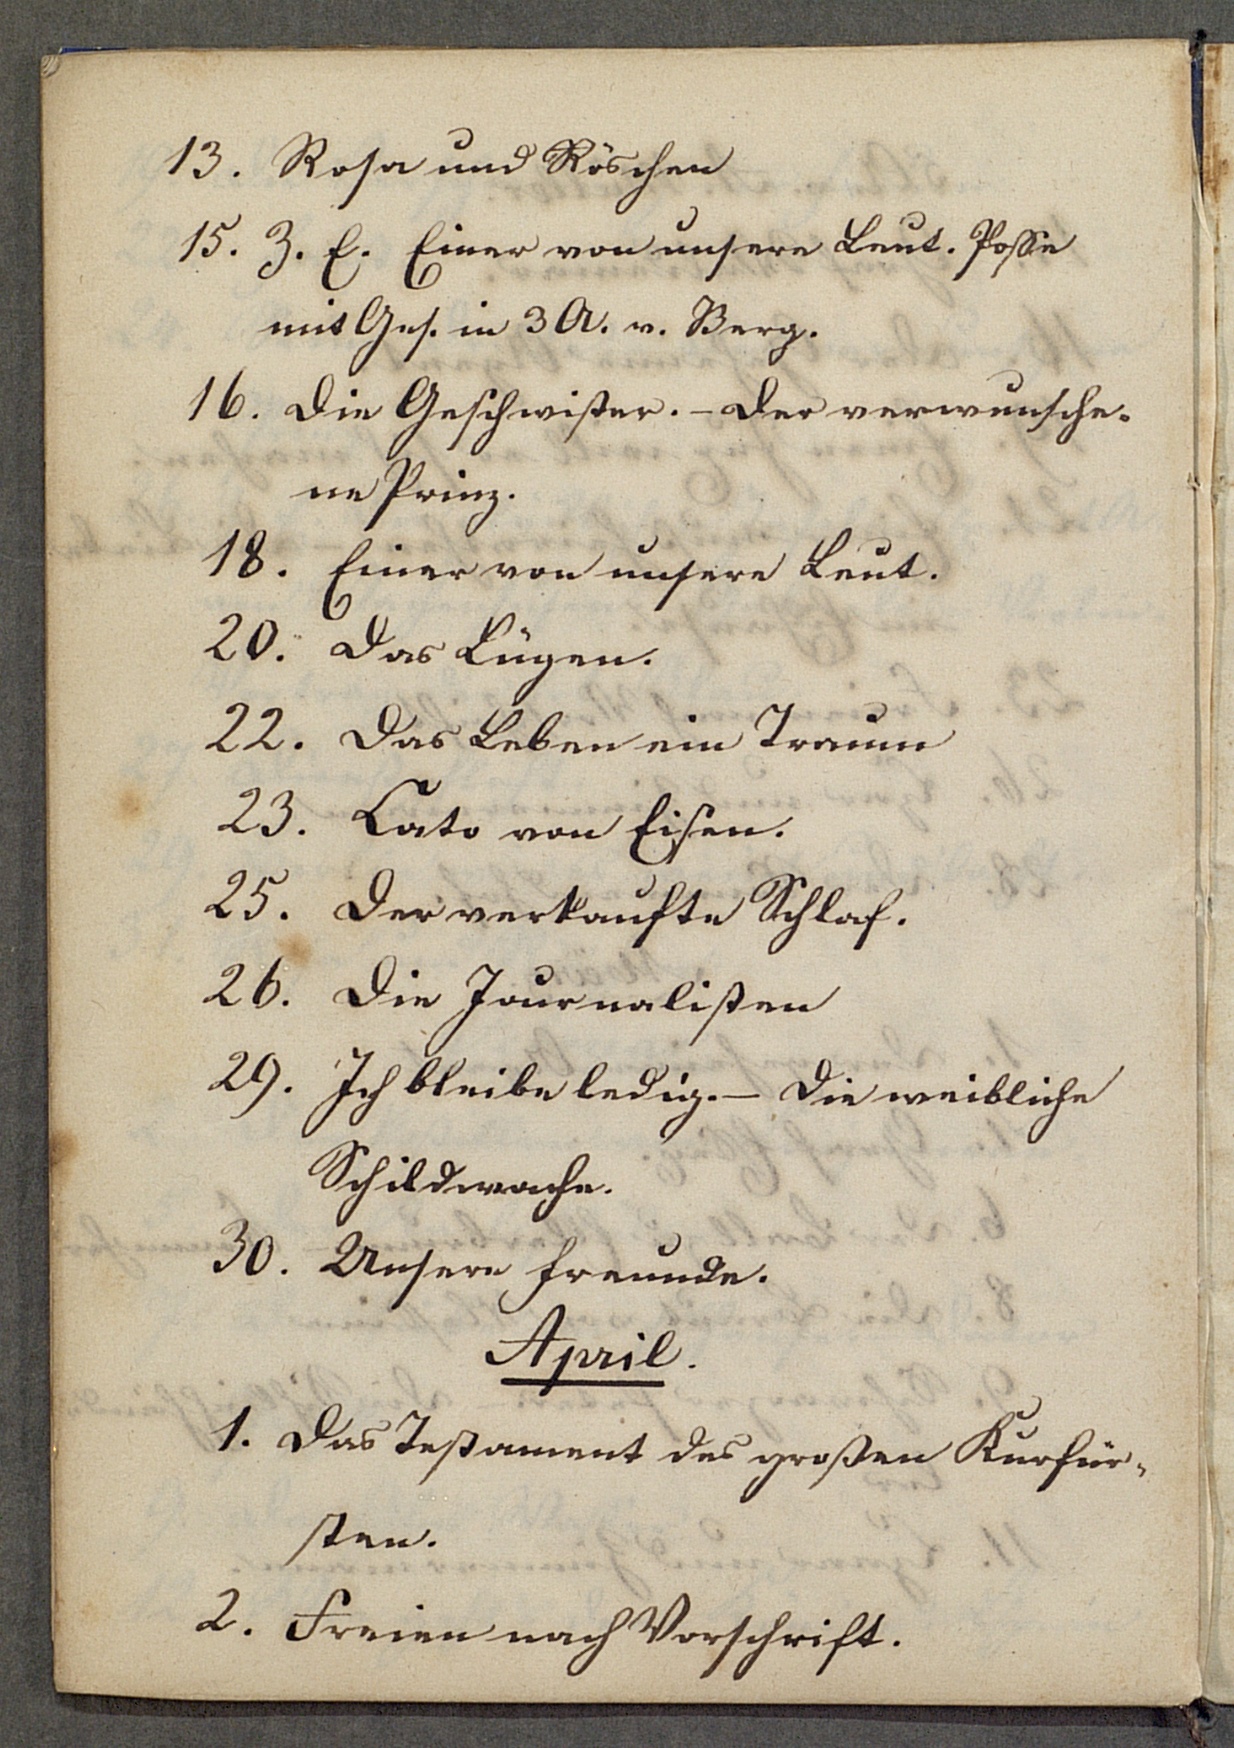 13. Rosa und Röschen
15. Z. E. Einer von unsere Leut. Posse
mit Ges. in 3 A. v. Berg.
16. Die Geschwister. – Der verwunsche-
ne Prinz.
18. Einer von unsere Leut.
20. Das Lügen.
22. Das Leben ein Traum
23. Cato von Eisen.
25. Der verkaufte Schlaf.
26. Die Journalisten
29. Ich bleibe ledig. – Die weibliche
Schildwache.
30. Unsere Freunde.
April.
1. Das Testament des großen Kurfür-
sten.
2. Freien nach Vorschrift.